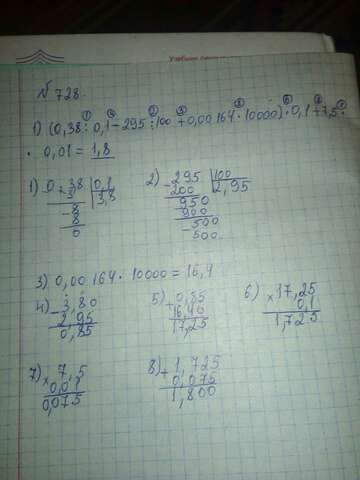 № 728.
1) (0,38 : 0,1 - 295 : 100 + 0,00164 · 10000) · 0,1 + 7,5 ·
· 0,01 = 1,8
1) 0,38 | 0,1
3 | 3,8
- 8
8
0
2) - 295 | 100
200 | 2,95
- 950
900
- 500
500
3) 0,00164 · 10000 = 16,4
4) - 3,80
2,95
0,85
5) + 0,85
16,40
17,25
6) × 17,25
0,1
1,725
7) × 7,5
0,01
0,075
8) + 1,725
0,075
1,800